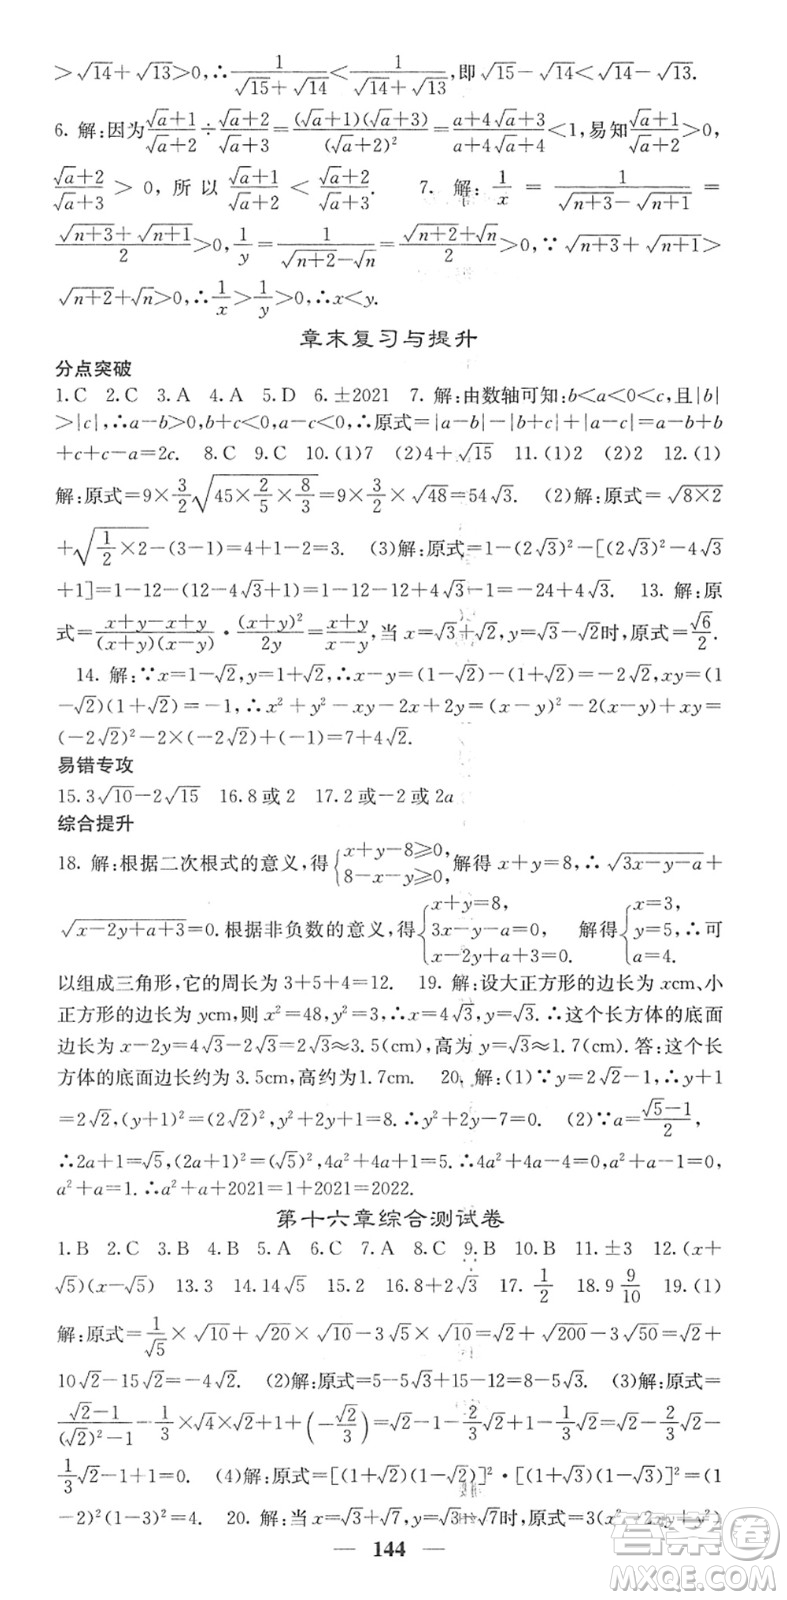 >√14+√13>0,∴1/(√15+√14)<1/(√14+√13),即√15-√14<√14-√13.
6. 解:因为(√a+1)/(√a+2)÷(√a+2)/(√a+3)=(√a+1)(√a+3)/(√a+2)²=(a+4√a+3)/(a+4√a+4)<1,易知(√a+1)/(√a+2)>0,
(√a+2)/(√a+3)>0,所以(√a+1)/(√a+2)<(√a+2)/(√a+3). 7. 解:1/x=1/(√(n+3)-√(n+1))=
(√(n+3)+√(n+1))/2>0,1/y=1/(√(n+2)-√n)=(√(n+2)+√n)/2>0,∵√(n+3)+√(n+1)>
√(n+2)+√n>0,∴1/x>1/y>0,∴x<y.
章末复习与提升
分点突破
1.C 2.C 3.A 4.A 5.D 6.±2021 7. 解:由数轴可知:b<a<0<c,且|b|
>|c|,∴a-b>0,b+c<0,a-c<0,∴原式=|a-b|-|b+c|+|a-c|=a-b+b
+c+c-a=2c. 8.C 9.C 10.(1)7 (2)4+√15 11.(1)2 (2)2 12.(1)
解:原式=9×3/2√(45×2/5×8/3)=9×3/2×√48=54√3. (2)解:原式=√(8×2)
+√(1/2×2)-(3-1)=4+1-2=3. (3)解:原式=1-(2√3)²-[(2√3)²-4√3
+1]=1-12-(12-4√3+1)=1-12-12+4√3-1=-24+4√3. 13. 解:原
式=(x+y-x+y)/((x+y)(x-y))·(x+y)²/2y=(x+y)/(x-y),当x=√3+√2,y=√3-√2时,原式=√6/2.
14. 解:∵x=1-√2,y=1+√2,∴x-y=(1-√2)-(1+√2)=-2√2,xy=(1
-√2)(1+√2)=-1,∴x²+y²-xy-2x+2y=(x-y)²-2(x-y)+xy=
(-2√2)²-2×(-2√2)+(-1)=7+4√2.
易错专攻
15.3√10-2√15 16.8或2 17.2或-2或2a
综合提升
18. 解:根据二次根式的意义,得{x+y-8≥0, 8-x-y≥0,解得x+y=8,∴√(3x-y-a)+
√(x-2y+a+3)=0.根据非负数的意义,得{x+y=8, 3x-y-a=0, x-2y+a+3=0, 解得{x=3, y=5, a=4.∴可
以组成三角形,它的周长为3+5+4=12. 19. 解:设大正方形的边长为xcm、小
正方形的边长为ycm,则x²=48,y²=3,∴x=4√3,y=√3.∴这个长方体的底面
边长为x-2y=4√3-2√3=2√3≈3.5(cm),高为y=√3≈1.7(cm).答:这个长
方体的底面边长约为3.5cm,高约为1.7cm. 20. 解:(1)∵y=2√2-1,∴y+1
=2√2,(y+1)²=(2√2)²,y²+2y+1=8.∴y²+2y-7=0. (2)∵a=(√5-1)/2,
∴2a+1=√5,(2a+1)²=(√5)²,4a²+4a+1=5.∴4a²+4a-4=0.a²+a-1=0,
a²+a=1.∴a²+a+2021=1+2021=2022.
第十六章综合测试卷
1.B 2.C 3.D 4.D 5.A 6.C 7.A 8.C 9.B 10.B 11.±3 12.(x+
√5)(x-√5) 13.3 14.14√5 15.2 16.8+2√3 17.1/2 18.9 9/10 19.(1)
解:原式=1/√5×√10+√20×√10-3√5×√10=√2+√200-3√50=√2+
10√2-15√2=-4√2. (2)解:原式=5-5√3+15-12=8-5√3. (3)解:原式=
(√2-1)/((√2)²-1)×√4×√2+1/3√2+(-√2/3)=√2-1-2/3√2+1/3√2=√2-1-2/3√2+
1/3√2-1+1=0. (4)解:原式=[(1+√2)(1-√2)]²·[(1+√3)(1-√3)]²=(1
-2)²(1-3)²=4. 20. 解:当x=√3+√7,y=√3-√7时,原式=3(x²-2xy+y²)
144
答案圈
MXQE.COM